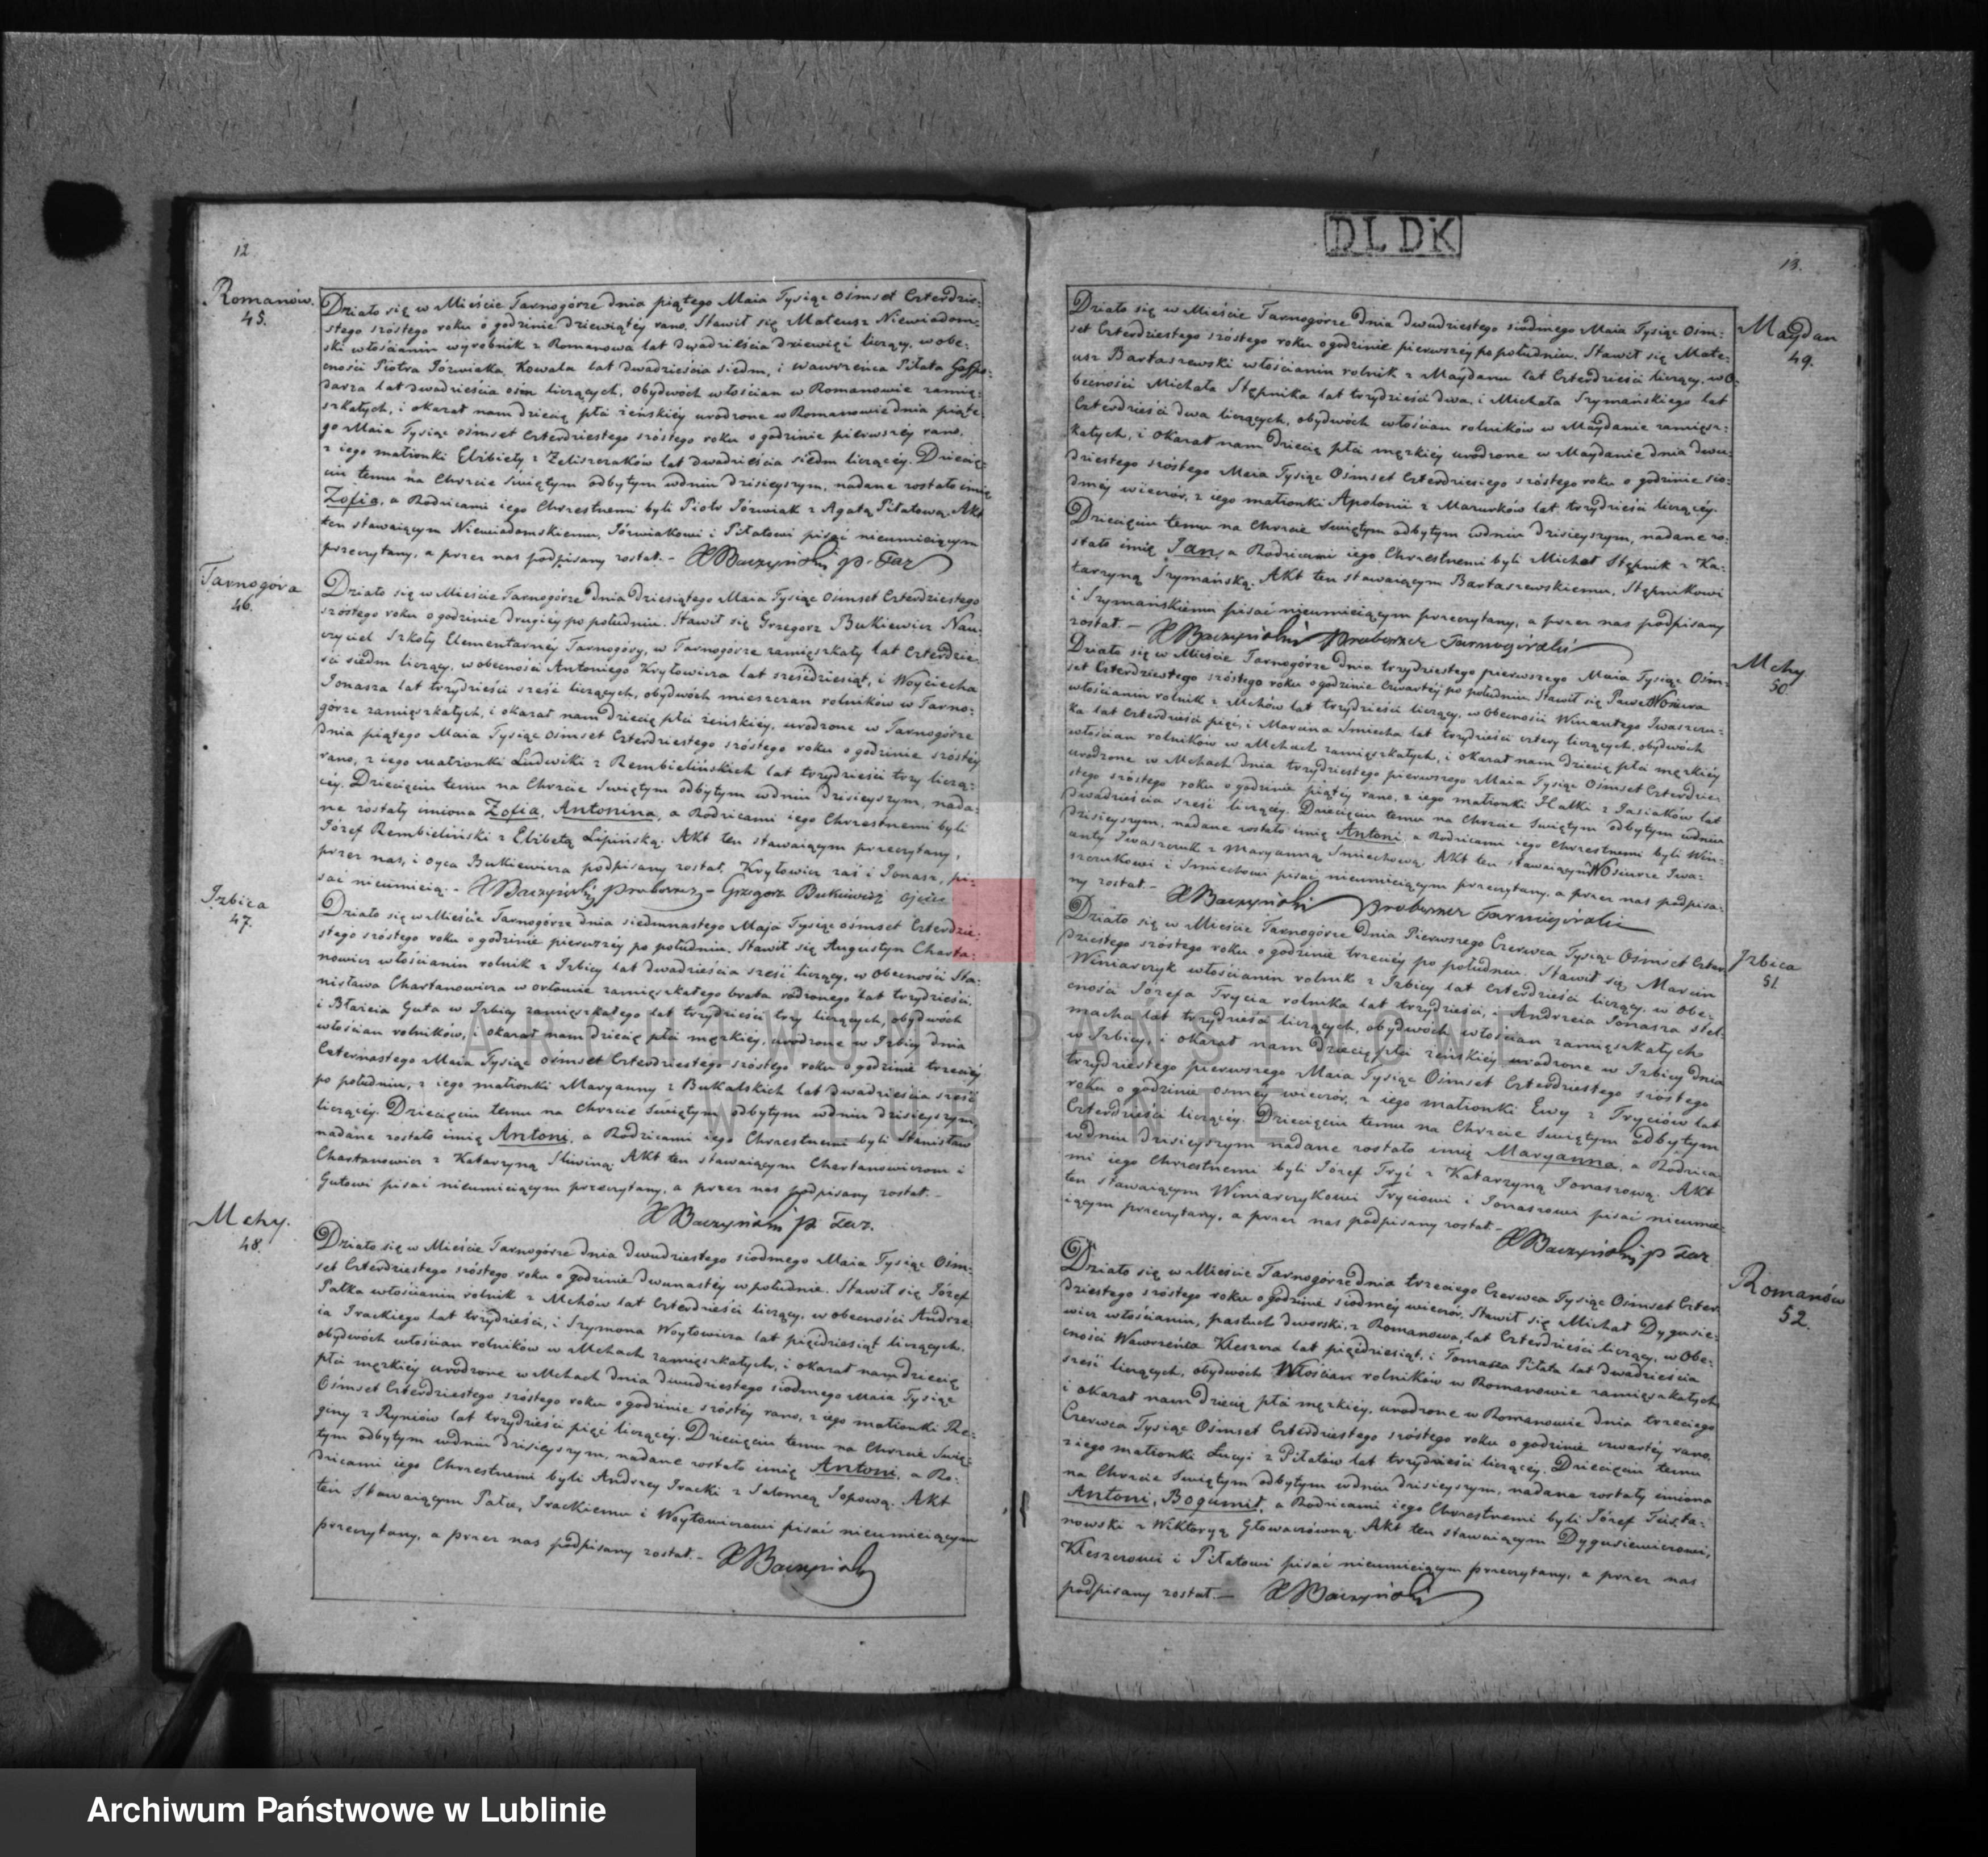 12
Romanów.
45.
Działo się w Mieście Tarnogórze dnia piątego Maia Tysiąc Ośmset Czterdzie-
stego szóstego roku o godzinie dziewiątéy rano. Stawił się Mateusz Niewiadom-
ski włościanin wyrobnik z Romanowa lat dwadzieścia dziewięć liczący, w obe-
cności Piotra Jóźwiaka, Kowala lat dwadzieścia siedm, i Wawrzeńca Piłata Gospo-
darza lat dwadzieścia ośm liczących, obydwóch włościan w Romanowie zamię-
szkałych, i okazał nam dziecię płci żeńskiéy urodzone w Romanowie dnia piąte-
go Maia Tysiąc ośmset Czterdziestego szóstego roku o godzinie pierwszéy rano,
z iego małżonki Elżbiety z Zeliszczaków lat dwadzieścia siedm liczącéy. Dziecię-
ciu temu na Chrzcie Świętym odbytym wdniu dzisieyszym, nadane zostało imię
Zofia, a Rodzicami iego Chrzestnemi byli Piotr Jóźwiak z Agatą Piłatową. Akt
ten stawaiącym Niewiadomskiemu, Jóźwiakowi i Piłatowi pisać nieumieiącym
przeczytany, a przez nas podpisany został. - X Baczyński p. Tar
Tarnogóra
46.
Działo się w Mieście Tarnogórze dnia dziesiątego Maia Tysiąc Ośmset Czterdziestego
szóstego roku o godzinie drugiéy po południu. Stawił się Grzegorz Bukiewicz Nau-
czyciel Szkoły Elementarnéy Tarnogóry, w Tarnogórze zamięszkały lat Czterdzie-
ści siedm liczący, w obecności Antoniego Kryłowicza lat sześćdziesiąt, i Woyciecha
Jonasza lat trzydzieści sześć liczących, obydwóch mieszczan rolników w Tarno-
górze zamięszkałych, i okazał nam dziecię płci żeńskiéy, urodzone w Tarnogórze
dnia piątego Maia Tysiąc Ośmset Czterdziestego szóstego roku o godzinie szóstéy
rano, z iego małżonki Ludwiki z Rembielińskich lat trzydzieści trzy liczą-
céy. Dziecięciu temu na Chrzcie Świętym odbytym wdniu dzisieyszym, nada-
ne zostały imiona Zofia, Antonina, a Rodzicami iego Chrzestnemi byli
Józef Rembieliński z Elżbietą Lipińską. Akt ten stawaiącym przeczytany,
przez nas, i oyca Bukiewicza podpisany został, Kryłowicz zaś i Jonasz, pi-
sać nieumieią. - X Baczyński proboszcz - Grzegorz Bukiewicz ojciec
Izbica
47.
Działo się w Mieście Tarnogórze dnia siedmnastego Maja Tysiąc ośmset Czterdzie-
stego szóstego roku o godzinie pierwszéy po południu. Stawił się Augustyn Charta-
nowicz włościanin rolnik z Izbicy lat dwadzieścia sześć liczący, w Obecności Sta-
nisława Chartanowicza w orłowie zamięszkałego brata rodzonego lat trzydzieści,
i Błażeia Guta w Izbicy zamięszkałego lat trzydzieści trzy liczących, obydwóch
włościan rolników, i okazał nam dziecię płci męzkiéy, urodzone w Izbicy dnia
Czternastego Maia Tysiąc ośmset Czterdziestego szóstego roku o godzinie trzeciéy
po południu, z iego małżonki Maryanny z Bukalskich lat dwadzieścia sześć
liczącéy. Dziecięciu temu na Chrzcie Świętym odbytym wdniu dzisieyszym,
nadane zostało imię Antoni, a Rodzicami iego Chrzestnemi byli Stanisław
Chartanowicz z Katarzyną Śliwiną. Akt ten stawaiącym Chartanowiczom i
Gutowi pisać nieumieiącym przeczytany, a przez nas podpisany został. -
X Baczyński p Tar.
Mchy.
48.
Działo się w Mieście Tarnogórze dnia dwudziestego siodmego Maia Tysiąc Ośm-
set Czterdziestego szóstego roku o godzinie dwunastéy w południe. Stawił się Józef
Pałka włościanin rolnik z Mchów lat Czterdzieści liczący, w obecności Andrze-
ia Irackiego lat trzydzieści, i Szymona Woytowicza lat pięćdziesiąt liczących,
obydwóch włościan rolników w Mchach zamięszkałych, i okazał nam dziecię
płci męzkiéy urodzone w Mchach dnia dwudziestego siodmego Maia Tysiąc
Ośmset Czterdziestego szóstego roku o godzinie szóstéy rano, z iego małżonki Re-
giny z Ryniów lat trzydzieści pięć liczącéy. Dziecięciu temu na Chrzcie Świę-
tym odbytym wdniu dzisieyszym, nadane zostało imię Antoni, a Ro-
dzicami iego Chrzestnemi byli Andrzey Iracki z Salomeą Sopową. Akt
ten Stawaiącym Pałce, Irackiemu i Woytowiczowi pisać nieumieiącym
przeczytany, a przez nas podpisany został. - X Baczyński
DLDK
13.
Maydan
49.
Działo się w Mieście Tarnogórze dnia dwudziestego siodmego Maia Tysiąc Ośm-
set Czterdziestego szóstego roku o godzinie pierwszéy po południu. Stawił się Mate-
usz Bartaszewski włościanin rolnik z Maydanu lat Czterdzieści liczący, w O-
becności Michała Stępnika lat trzydzieści dwa, i Michała Szymańskiego lat
Czterdzieści dwa liczących, obydwóch włościan rolników w Maydanie zamięsz-
kałych, i okazał nam dziecię płci męzkiéy urodzone w Maydanie dnia dwu-
dziestego szóstego Maia Tysiąc Ośmset Czterdziestego szóstego roku o godzinie sio-
dméy wieczór, z iego małżonki Apolonii z Mazurków lat trzydzieści liczącéy.
Dziecięciu temu na Chrzcie Świętym odbytym wdniu dzisieyszym, nadane zo-
stało imię Jan, a Rodzicami iego Chrzestnemi byli Michał Stępnik z Ka-
tarzyną Szymańską. Akt ten stawaiącym Bartaszewskiemu, Stępnikowi
i Szymańskiemu pisać nieumieiącym przeczytany, a przez nas podpisany
został. - X Baczyński proboszcz Tarnogórski
Mchy
50
Działo się w Mieście Tarnogórze dnia trzydziestego pierwszego Maia Tysiąc Ośm-
set Czterdziestego szóstego roku o godzinie Czwartéy po południu Stawił się Paweł
włościanin rolnik z Mchów lat trzydzieści liczący, w Obecności Winantego Iwaszczu-
ka lat Czterdzieści pięć, i Marcina Śmiecha lat trzydzieści cztery liczących, obydwóch
włościan rolników w Mchach zamięszkałych, i okazał nam dziecię płci męzkiéy
urodzone w Mchach dnia trzydziestego pierwszego Maia Tysiąc Ośmset Czterdzie-
stego szóstego roku o godzinie piątéy rano, z iego małżonki z Jasiaków lat
dwadzieścia sześć liczącéy. Dziecięciu temu na Chrzcie Świętym odbytym wdniu
dzisieyszym, nadane zostało imię Antoni, a Rodzicami iego Chrzestnemi byli Win-
anty Iwaszczuk z Maryanną Śmiechową. Akt ten stawaiącym Iwa-
szczukowi i Śmiechowi pisać nieumieiącym przeczytany, a przez nas podpisa-
ny został. - X Baczyński proboszcz Tarnogórski
Izbica
51
Działo się w Mieście Tarnogórze dnia Pierwszego Czerwca Tysiąc Ośmset Czter-
dziestego szóstego roku o godzinie trzeciéy po południu. Stawił się Marcin
Winiarczyk włościanin rolnik z Izbicy lat Czterdzieści liczący, w Obe-
cności Józefa Trycia rolnika lat trzydzieści, i Andrzeia Jonasza stel-
macha lat trzydzieści liczących, obydwóch włościan zamięszkałych
w Izbicy, i okazał nam dziecię płci żeńskiéy urodzone w Izbicy dnia
trzydziestego pierwszego Maia Tysiąc Ośmset Czterdziestego szóstego
roku o godzinie osméy wieczór, z iego małżonki Ewy z Tryciów lat
Czterdzieści liczącéy. Dziecięciu temu na Chrzcie Świętym odbytym
wdniu dzisieyszym nadane zostało imię Maryanna, a Rodzica-
mi iego Chrzestnemi byli Józef Tryć z Katarzyną Jonaszową. Akt
ten stawaiącym Winiarczykowi Tryciowi i Jonaszowi pisać nieumie-
iącym przeczytany, a przez nas podpisany został -
X Baczyński p Tar
Romanów
52.
Działo się w Mieście Tarnogórze dnia trzeciego Czerwca Tysiąc Ośmset Czter-
dziestego szóstego roku o godzinie siodméy wieczór. Stawił się Michał Dygusie-
wicz włościanin, pastuch dworski, z Romanowa, lat Czterdzieści liczący, w Obe-
cności Wawrzeńca Kleszcza lat pięćdziesiąt, i Tomasza Piłata lat dwadzieścia
sześć liczących, obydwóch Włościan rolników w Romanowie zamięszkałych,
i okazał nam dziecię płci męzkiéy, urodzone w Romanowie dnia trzeciego
Czerwca Tysiąc Ośmset Czterdziestego szóstego roku o godzinie czwartéy rano,
z iego małżonki Łucyi z Piłatów lat trzydzieści liczącéy. Dziecięciu temu
na Chrzcie Świętym odbytym wdniu dzisieyszym, nadane zostały imiona
Antoni, Bogumił, a Rodzicami iego Chrzestnemi byli Józef
nowski z Wiktoryą Głowaczówną. Akt ten stawaiącym Dygusiewiczowi,
Kleszczowi i Piłatowi pisać nieumieiącym przeczytany, a przez nas
podpisany został. - X Baczyński
ARCHIWUM PAŃSTWOWE
W LUBLINIE
Archiwum Państwowe w Lublinie